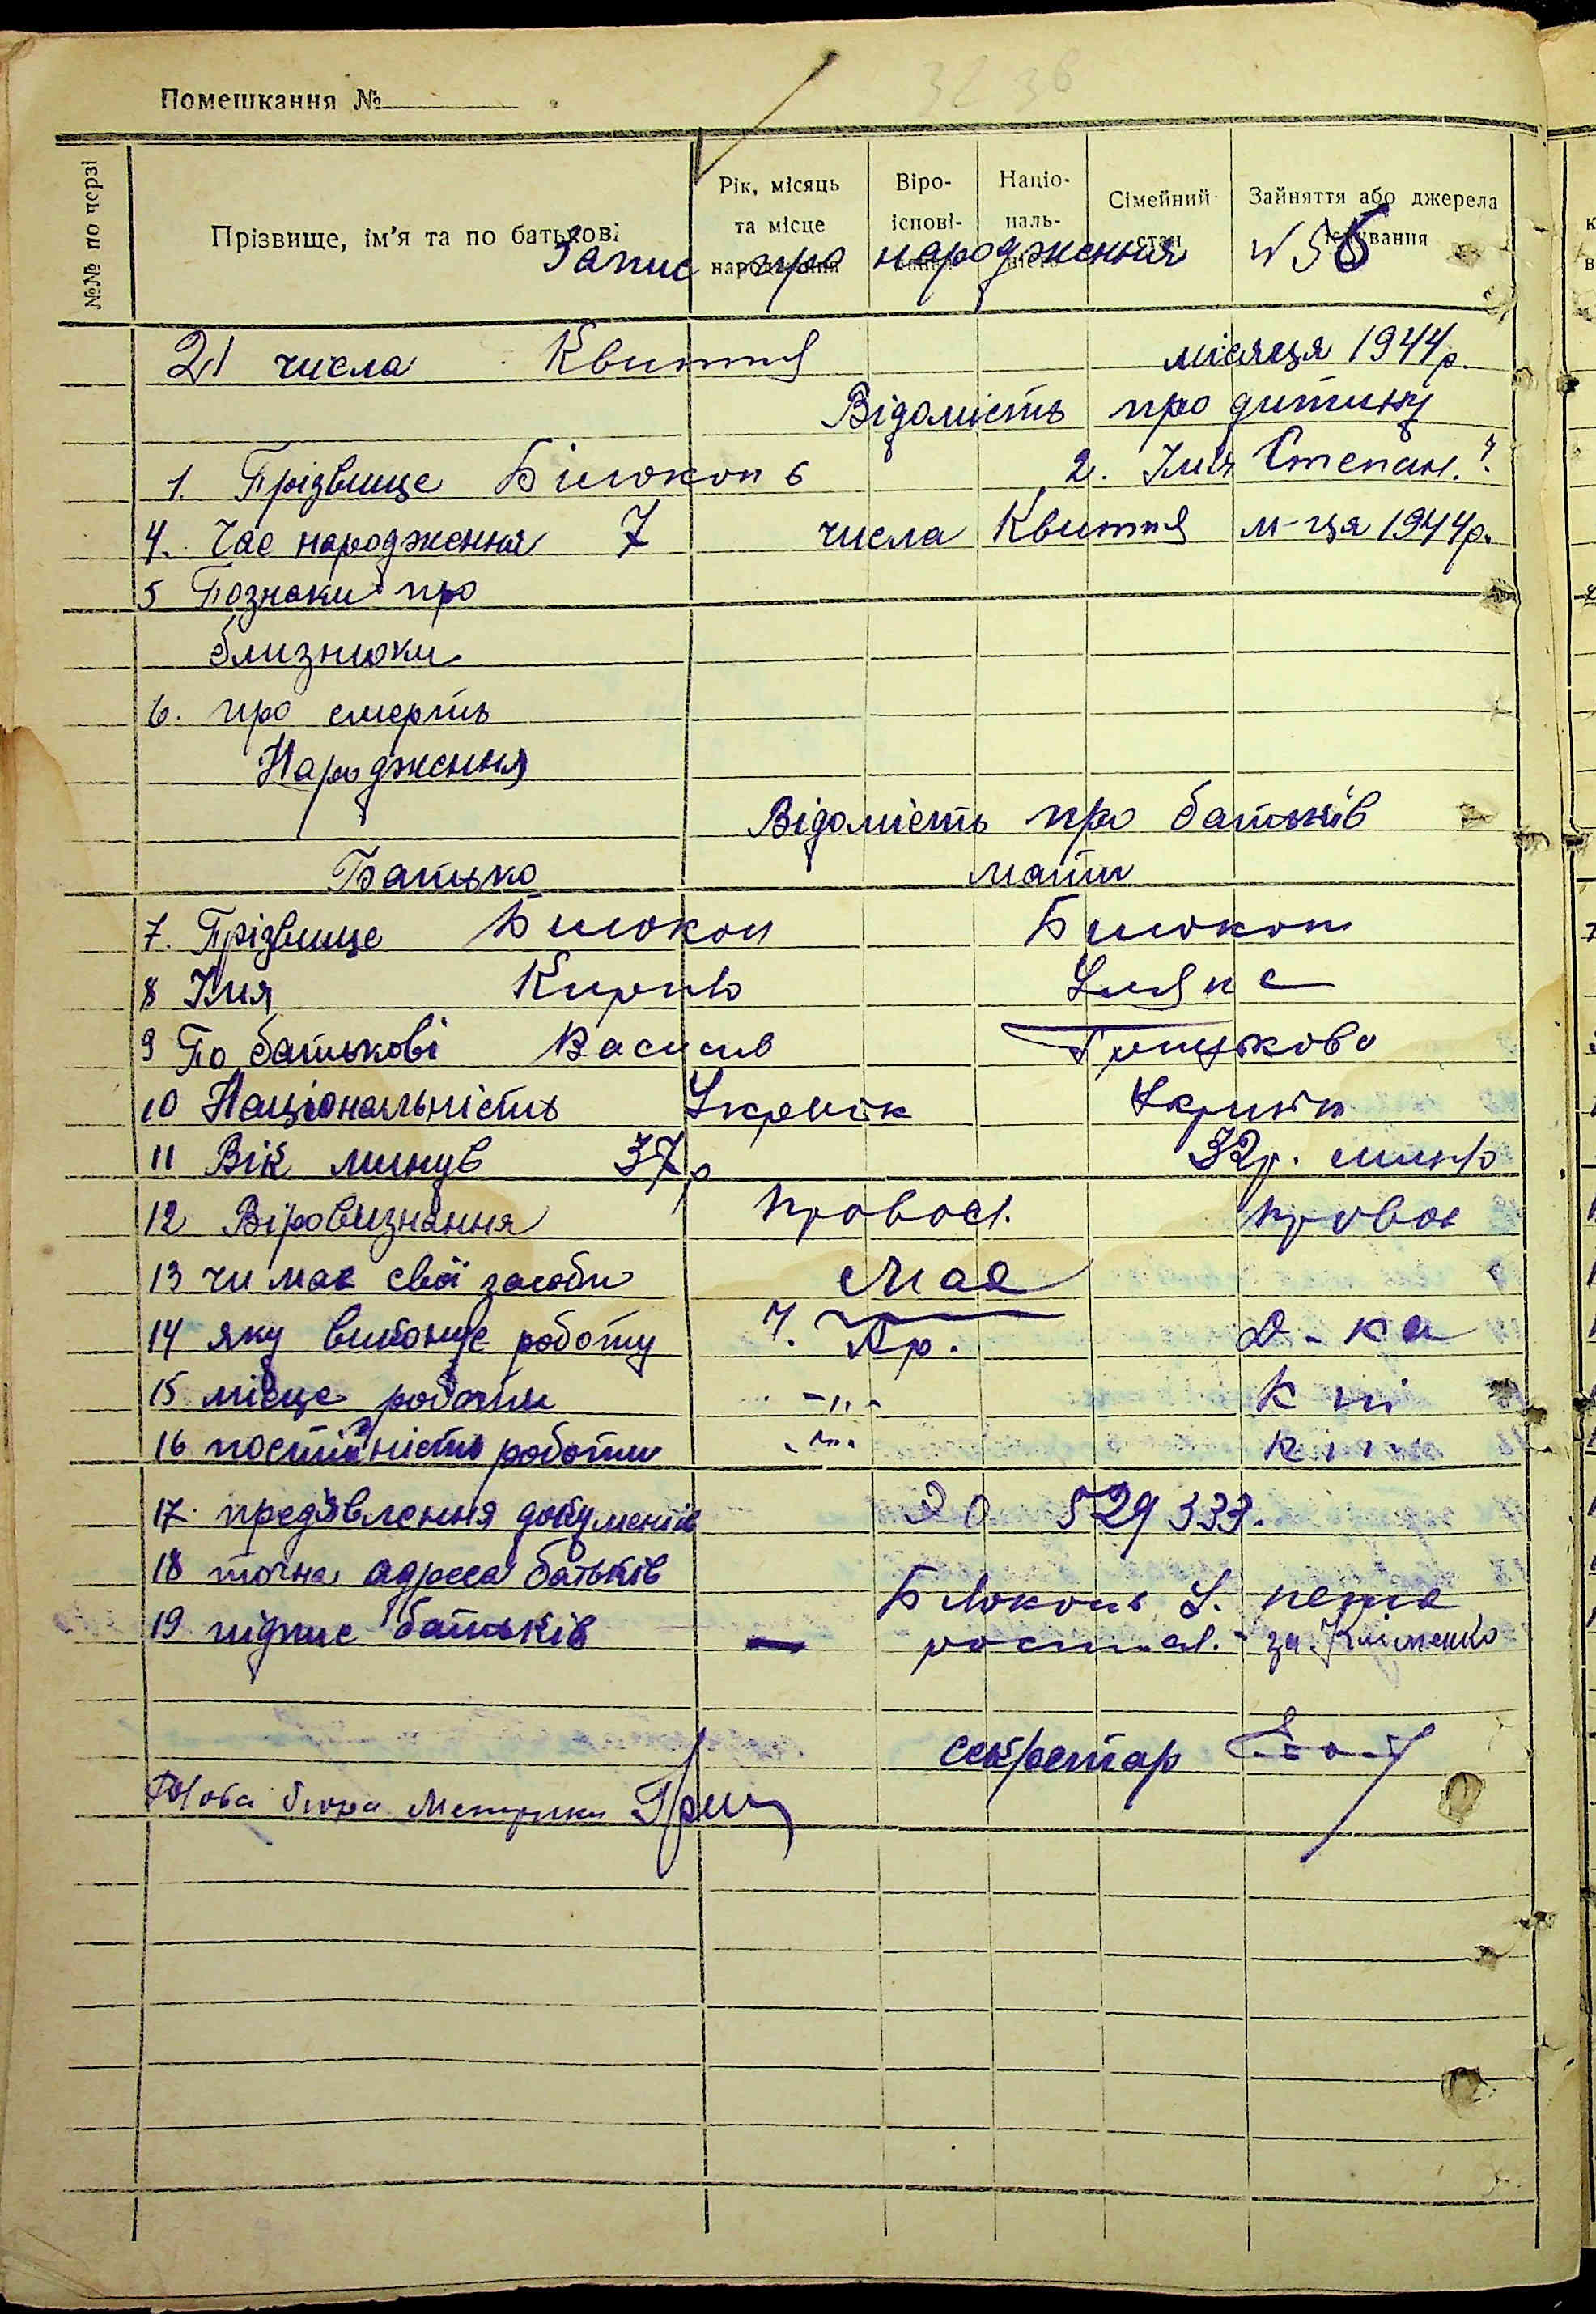 Помешкання №
№№ по черзі
Прізвище, ім'я та по батькові
Рік, місяць та місце народження
Віро-ісповідання
Націо-наль-ність
Сімейний стан
Зайняття або джерела існування
Запис про народження № 56
21 числа Квитня місяця 1944р.
Відомість про дитину
1. Прізвище Білоконь 2. Імя Степан. ч.
4. Час народження 7 числа Квитня м-ця 1944р.
5 Познаки про
близнюки
6. про смерть
Народження
Відомість про батьків
Батько мати
7. Прізвище Билокон Билокон
8 Імя Кирило Уляна
9 По батькові Васил Грицькова
10 Національність Україн
11 Вік минув 37р 32р. минуло
12 Віровизнання правосл. правос
13 чи має свої засоби має
14 яку виконує роботу Ч. Ар. д-ка
15 місце роботи -"-
16 постійність роботи -"-
17. предявлення документів 529333.
18 точна адреса батьків
19 підпис батьків Білоконь У. неписм
за Клименко
секретар
Голова бюра